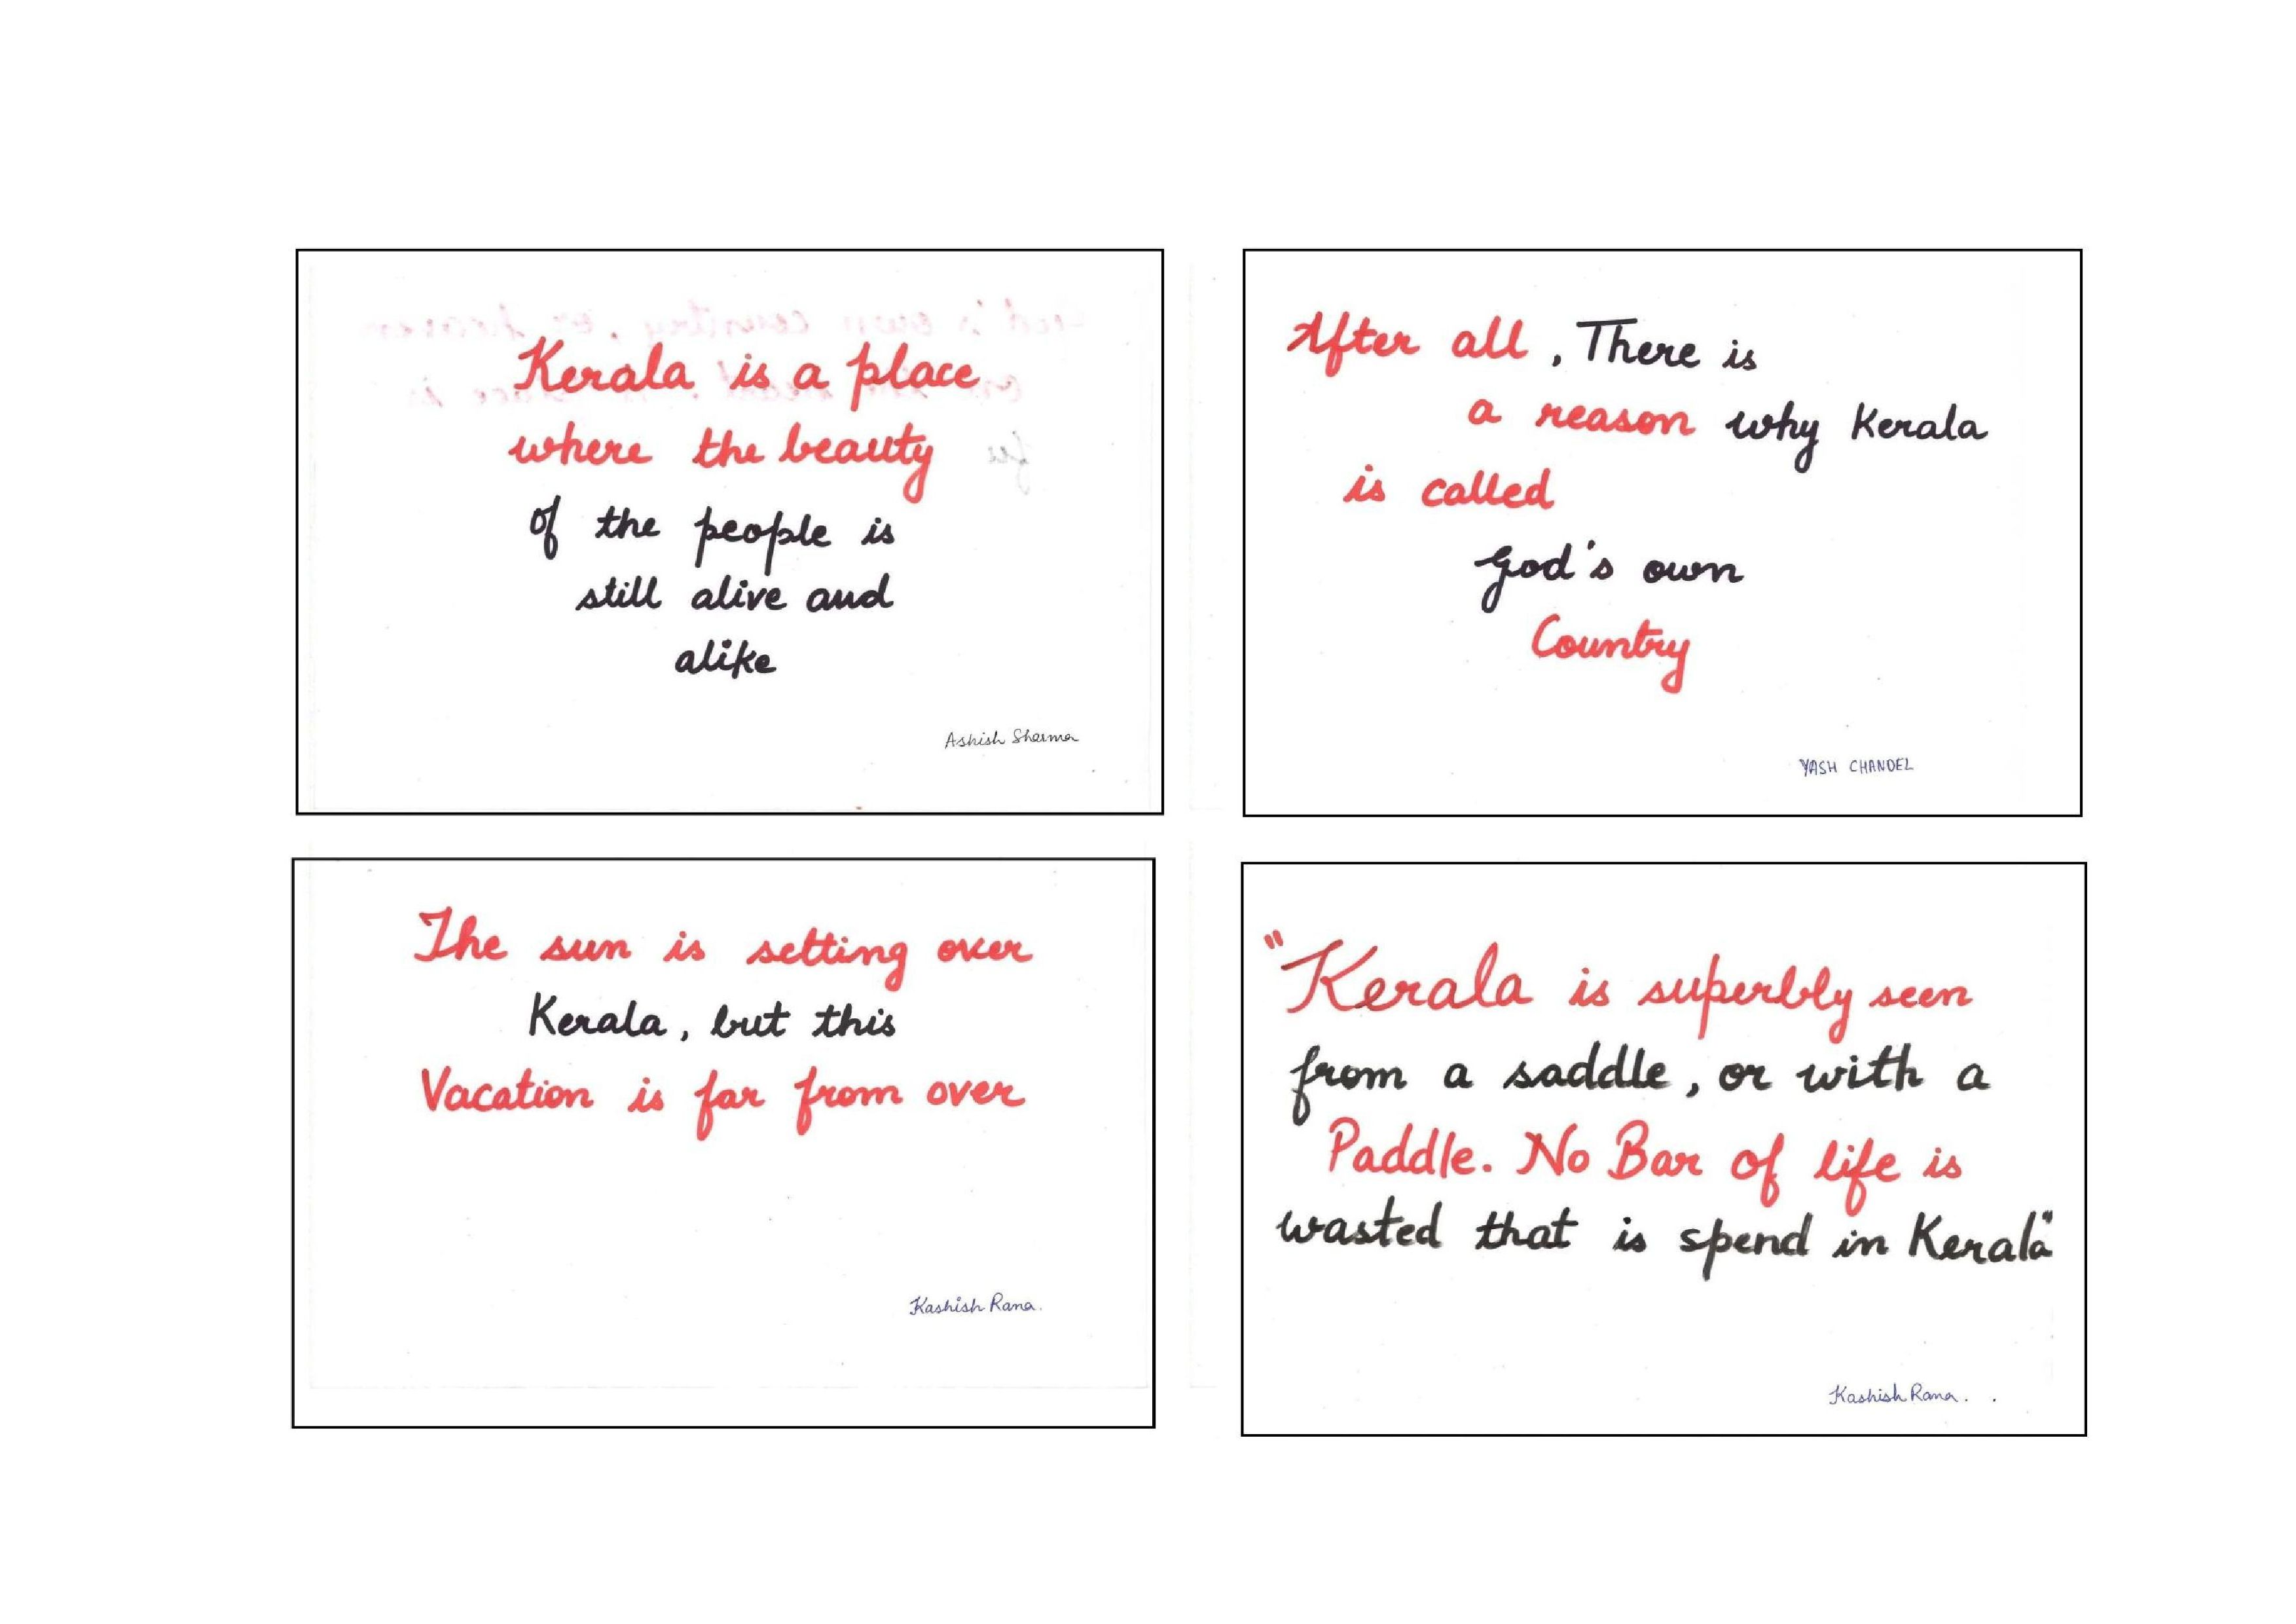 Kerala is a place
where the beauty
of the people is
still alive and
alike
Ashish Sharma
After all, There is
a reason why Kerala
is called
God's own
Country
YASH CHANDEL
The sun is setting over
Kerala, but this
Vacation is far from over
Kashish Rana.
"Kerala is superbly seen
from a saddle, or with a
Paddle. No Bar of life is
wasted that is spend in Kerala"
Kashish Rana.